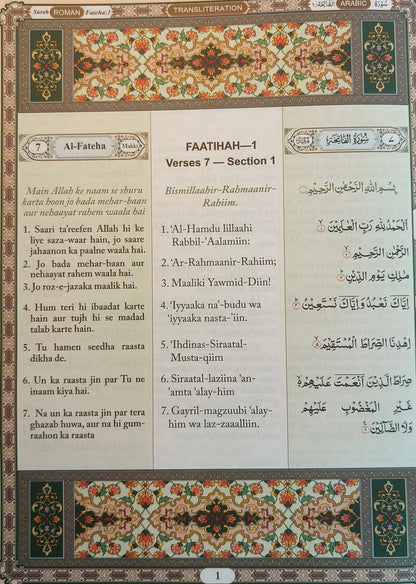 Surah ROMAN Fateha:1
TRANSLITERATION
الفَاتِحَة:١ ARABIC سُوْرَة
7 Al-Fateha Makki
Main Allah ke naam se shuru
karta hoon jo bada mehar-baan
aur nehaayat rahem waala hai
1. Saari ta'reefen Allah hi ke
liye saza-waar hain, jo saare
jahaanon ka paalne waala hai.
2. Jo bada mehar-baan aur
nehaayat rahem waala hai.
3. Jo roz-e-jazaka maalik hai.
4. Hum teri hi ibaadat karte
hain aur tujh hi se madad
talab karte hain.
5. Tu hamen seedha raasta
dikha de.
6. Un ka raasta jin par Tu ne
inaam kiya hai.
7. Na un ka raasta jin par tera
ghazab huwa, aur na hi gum-
raahon ka raasta
FAATIHAH—1
Verses 7 — Section 1
Bismillaahir-Rahmaanir-
Rahiim.
1. 'Al-Hamdu lillaahi
Rabbil-'Aalamiin:
2. 'Ar-Rahmaanir-Rahiim;
3. Maaliki Yawmid-Diin!
4. 'Iyyaaka na'-budu wa
'iyyaaka nasta-'iin.
5. 'Ihdinas-Siraatal-
Musta-qiim
6. Siraatal-laziina 'an-
'amta 'alay-him
7. Gayril-magzuubi 'alay-
him wa laz-zaaalliin.
سُوْرَةُ الفَاتِحَةِ ٧
بِسْمِ اللّٰهِ الرَّحْمٰنِ الرَّحِيْمِ
اَلْحَمْدُ لِلّٰهِ رَبِّ الْعٰلَمِيْنَ ۙ﴿١﴾
الرَّحْمٰنِ الرَّحِيْمِ ۙ﴿٢﴾
مٰلِكِ يَوْمِ الدِّيْنِ ؕ﴿٣﴾
اِيَّاكَ نَعْبُدُ وَاِيَّاكَ نَسْتَعِيْنُ ؕ﴿٤﴾
اِهْدِنَا الصِّرَاطَ الْمُسْتَقِيْمَ ۙ﴿٥﴾
صِرَاطَ الَّذِيْنَ اَنْعَمْتَ عَلَيْهِمْ ۙ﴿٦﴾
غَيْرِ الْمَغْضُوْبِ عَلَيْهِمْ
وَلَا الضَّآلِّيْنَ ﴿٧﴾
1